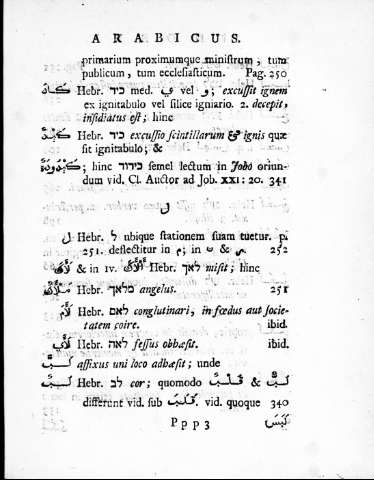 ARABICUS.
primarium proximumque ministrum, tum
publicum, tum ecclesiasticum. Pag. 250
Hebr. כיד med. ي vel و; excussit ignem
ex ignitabulo vel silice igniario. 2. decepit,
insidiatus est; hinc
Hebr. כיד excussio scintillarum & ignis quæ
sit ignitabulo; &
hinc כידור semel lectum in Jobo oriun-
dum vid. Cl. Auctor ad Job. XXI: 20. 341
ل
ل Hebr. ל ubique stationem suam tuetur. p.
251. deflectitur in م; in ن & 252
& in IV. Hebr. לאך misit; hinc
Hebr. מלאך angelus. 251
Hebr. לאם conglutinari, in fœdus aut socie-
tatem coire. ibid.
Hebr. לאה fessus obhæsit. ibid.
affixus uni loco adhæsit; unde
Hebr. לב cor; quomodo &
differunt vid. sub vid. quoque 340
Ppp 3